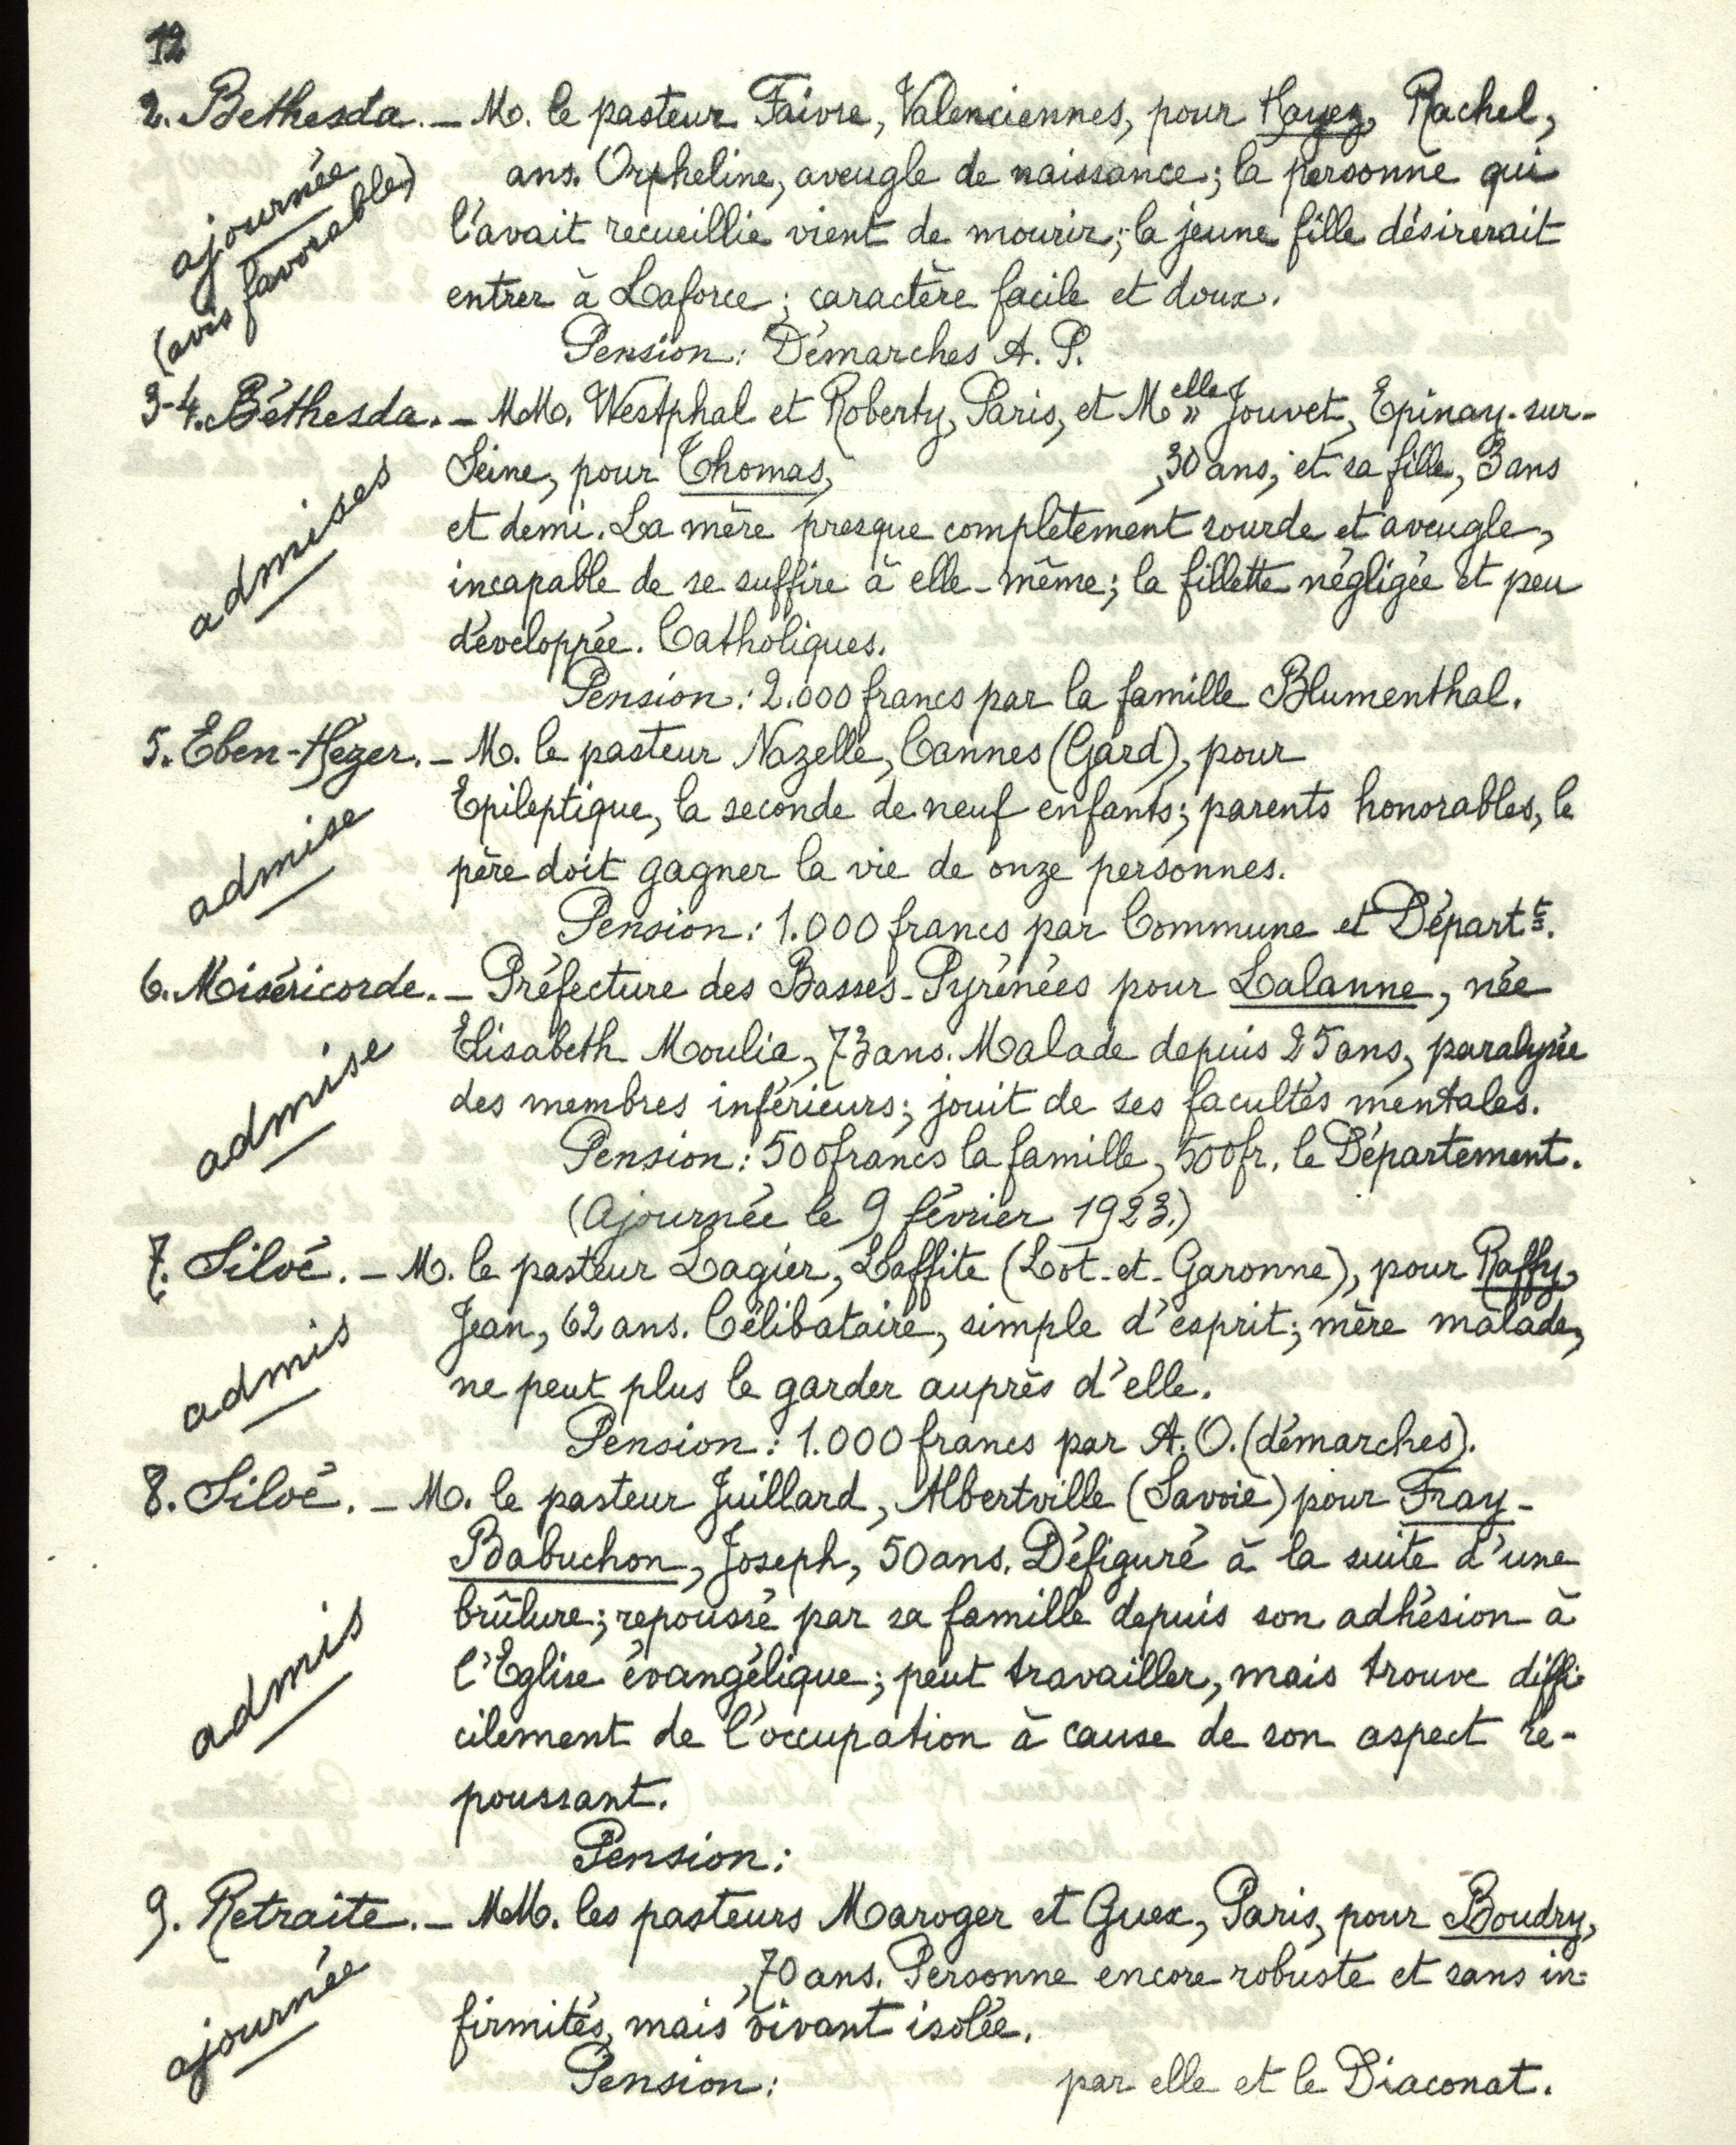 12
2. Béthesda. — M. le pasteur Faivre, Valenciennes, pour Hayez, Rachel,
ajournée
(avis favorable)
ans. Orpheline, aveugle de naissance; la personne qui
l'avait recueillie vient de mourir; la jeune fille désirerait
entrer à Laforce; caractère facile et doux.
Pension: Démarches A. P.
3-4. Béthesda. — MM. Westphal et Roberty, Paris, et Melle Jouvet, Epinay-sur-
admises
Seine, pour Thomas, , 30 ans, et sa fille, 3 ans
et demi. La mère presque complètement sourde et aveugle,
incapable de se suffire à elle-même; la fillette négligée et peu
développée. Catholiques.
Pension: 2.000 francs par la famille Blumenthal.
5. Eben-Hézer. — M. le pasteur Nazelle, Cannes (Gard), pour
admise
Epileptique, la seconde de neuf enfants; parents honorables, le
père doit gagner la vie de onze personnes.
Pension: 1.000 francs par Commune et Départt.
6. Miséricorde. — Préfecture des Basses-Pyrénées pour Lalanne, née
admise
Elisabeth Moulia, 73 ans. Malade depuis 25 ans, paralysée
des membres inférieurs; jouit de ses facultés mentales.
Pension: 500 francs la famille, 500 fr. le Département.
(Ajournée le 9 février 1923.)
7. Siloé. — M. le pasteur Lagier, Laffite (Lot-et-Garonne), pour Raffy,
admis
Jean, 62 ans. Célibataire, simple d'esprit; mère malade,
ne peut plus le garder auprès d'elle.
Pension: 1.000 francs par A. O. (démarches).
8. Siloé. — M. le pasteur Juillard, Albertville (Savoie) pour Fray-
admis
Babuchon, Joseph, 50 ans. Défiguré à la suite d'une
brûlure; repoussé par sa famille depuis son adhésion à
l'Eglise évangélique; peut travailler, mais trouve diffi-
cilement de l'occupation à cause de son aspect re-
poussant.
Pension:
9. Retraite. — MM. les pasteurs Maroger et Guex, Paris, pour Boudry,
ajournée
, 70 ans. Personne encore robuste et sans in-
firmités, mais vivant isolée.
Pension: par elle et le Diaconat.